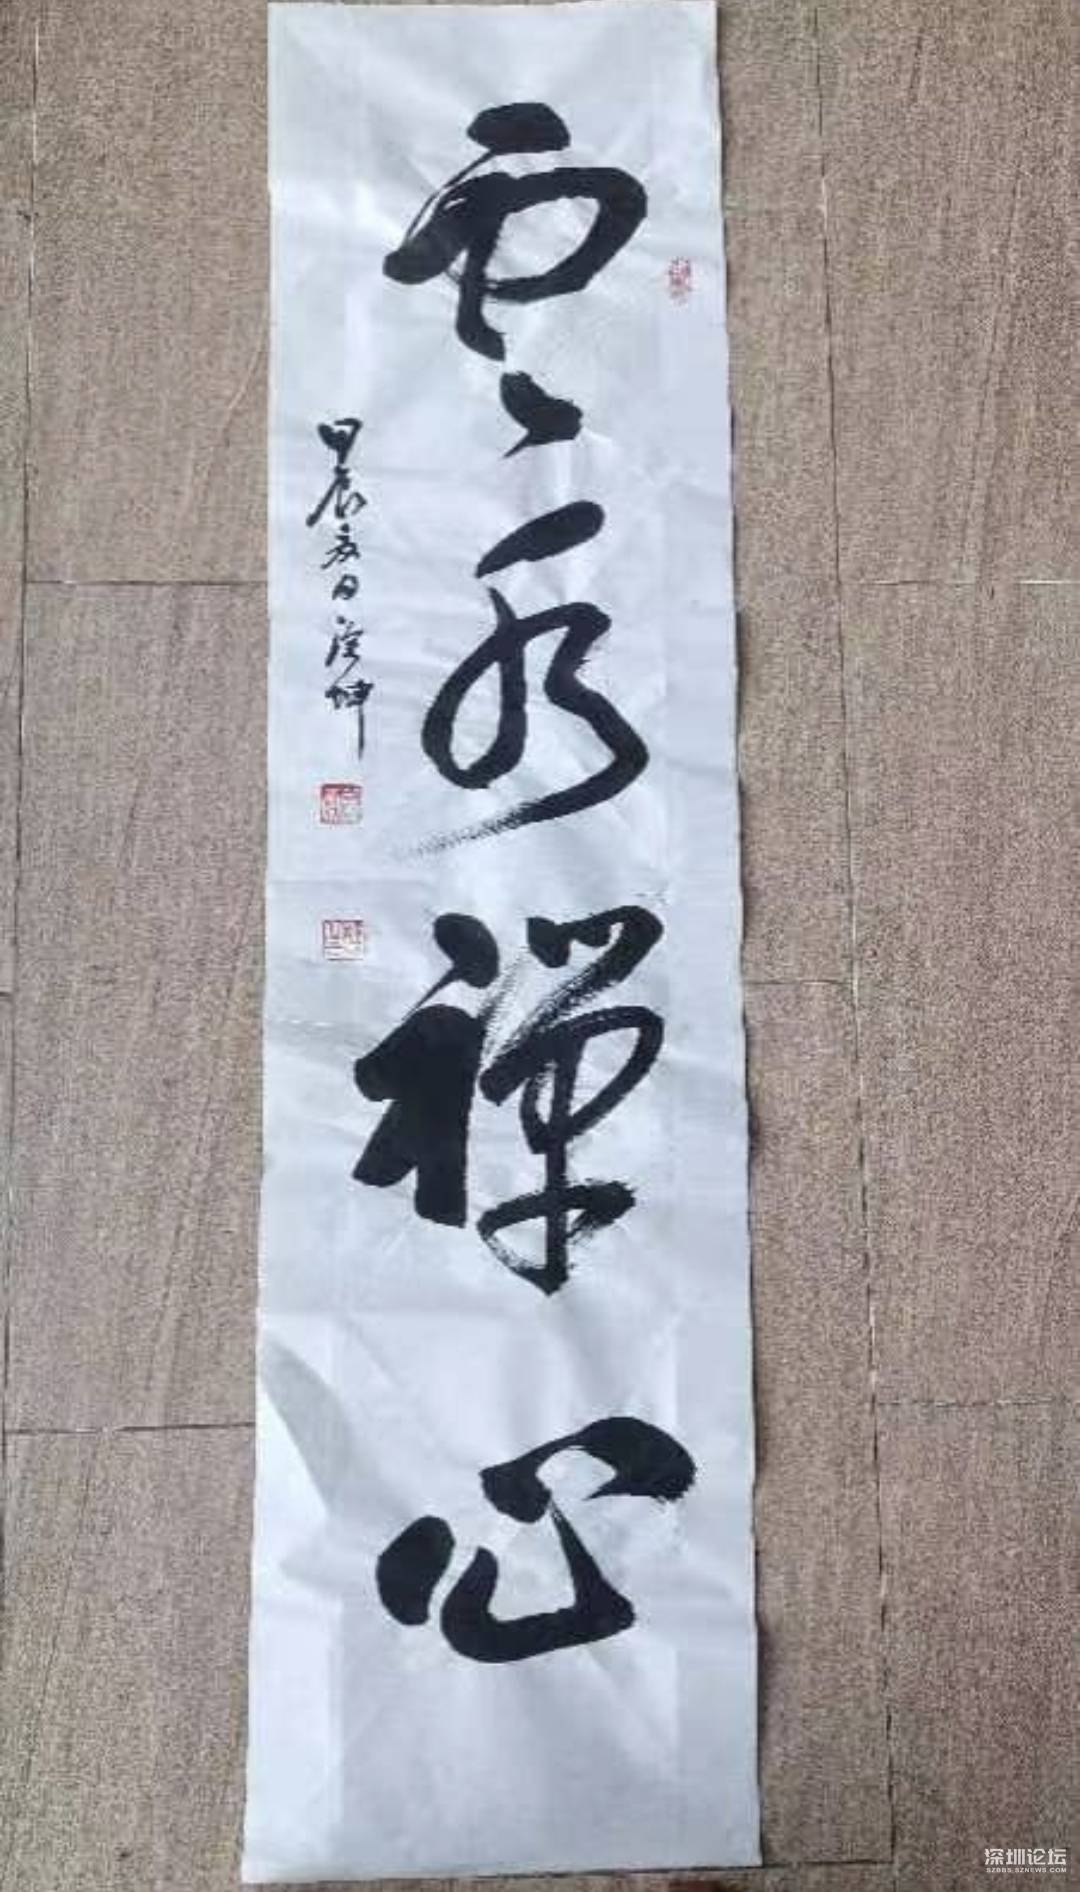 雲水禅心
甲辰夏日 坤
深圳论坛
SZBBS.SZNEWS.COM